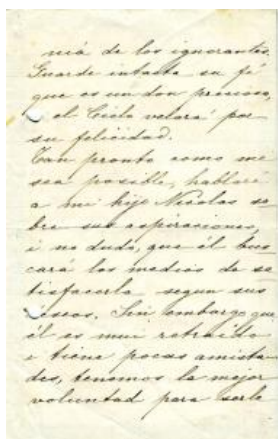 nia de los ignorantes.
Guarde intacta su fé
que es un don precioso,
el Cielo velará por
su felicidad.
Tan pronto como me
sea posible, hablaré
a mi hijo Nicolas so
bre sus aspiraciones,
i no dudo, que él bus
cará los medios de sa
tisfacerla segun sus
deseos. Sin embargo que
él es mui retraido
i tiene pocas amista
des, tenemos la mejor
voluntad para serle